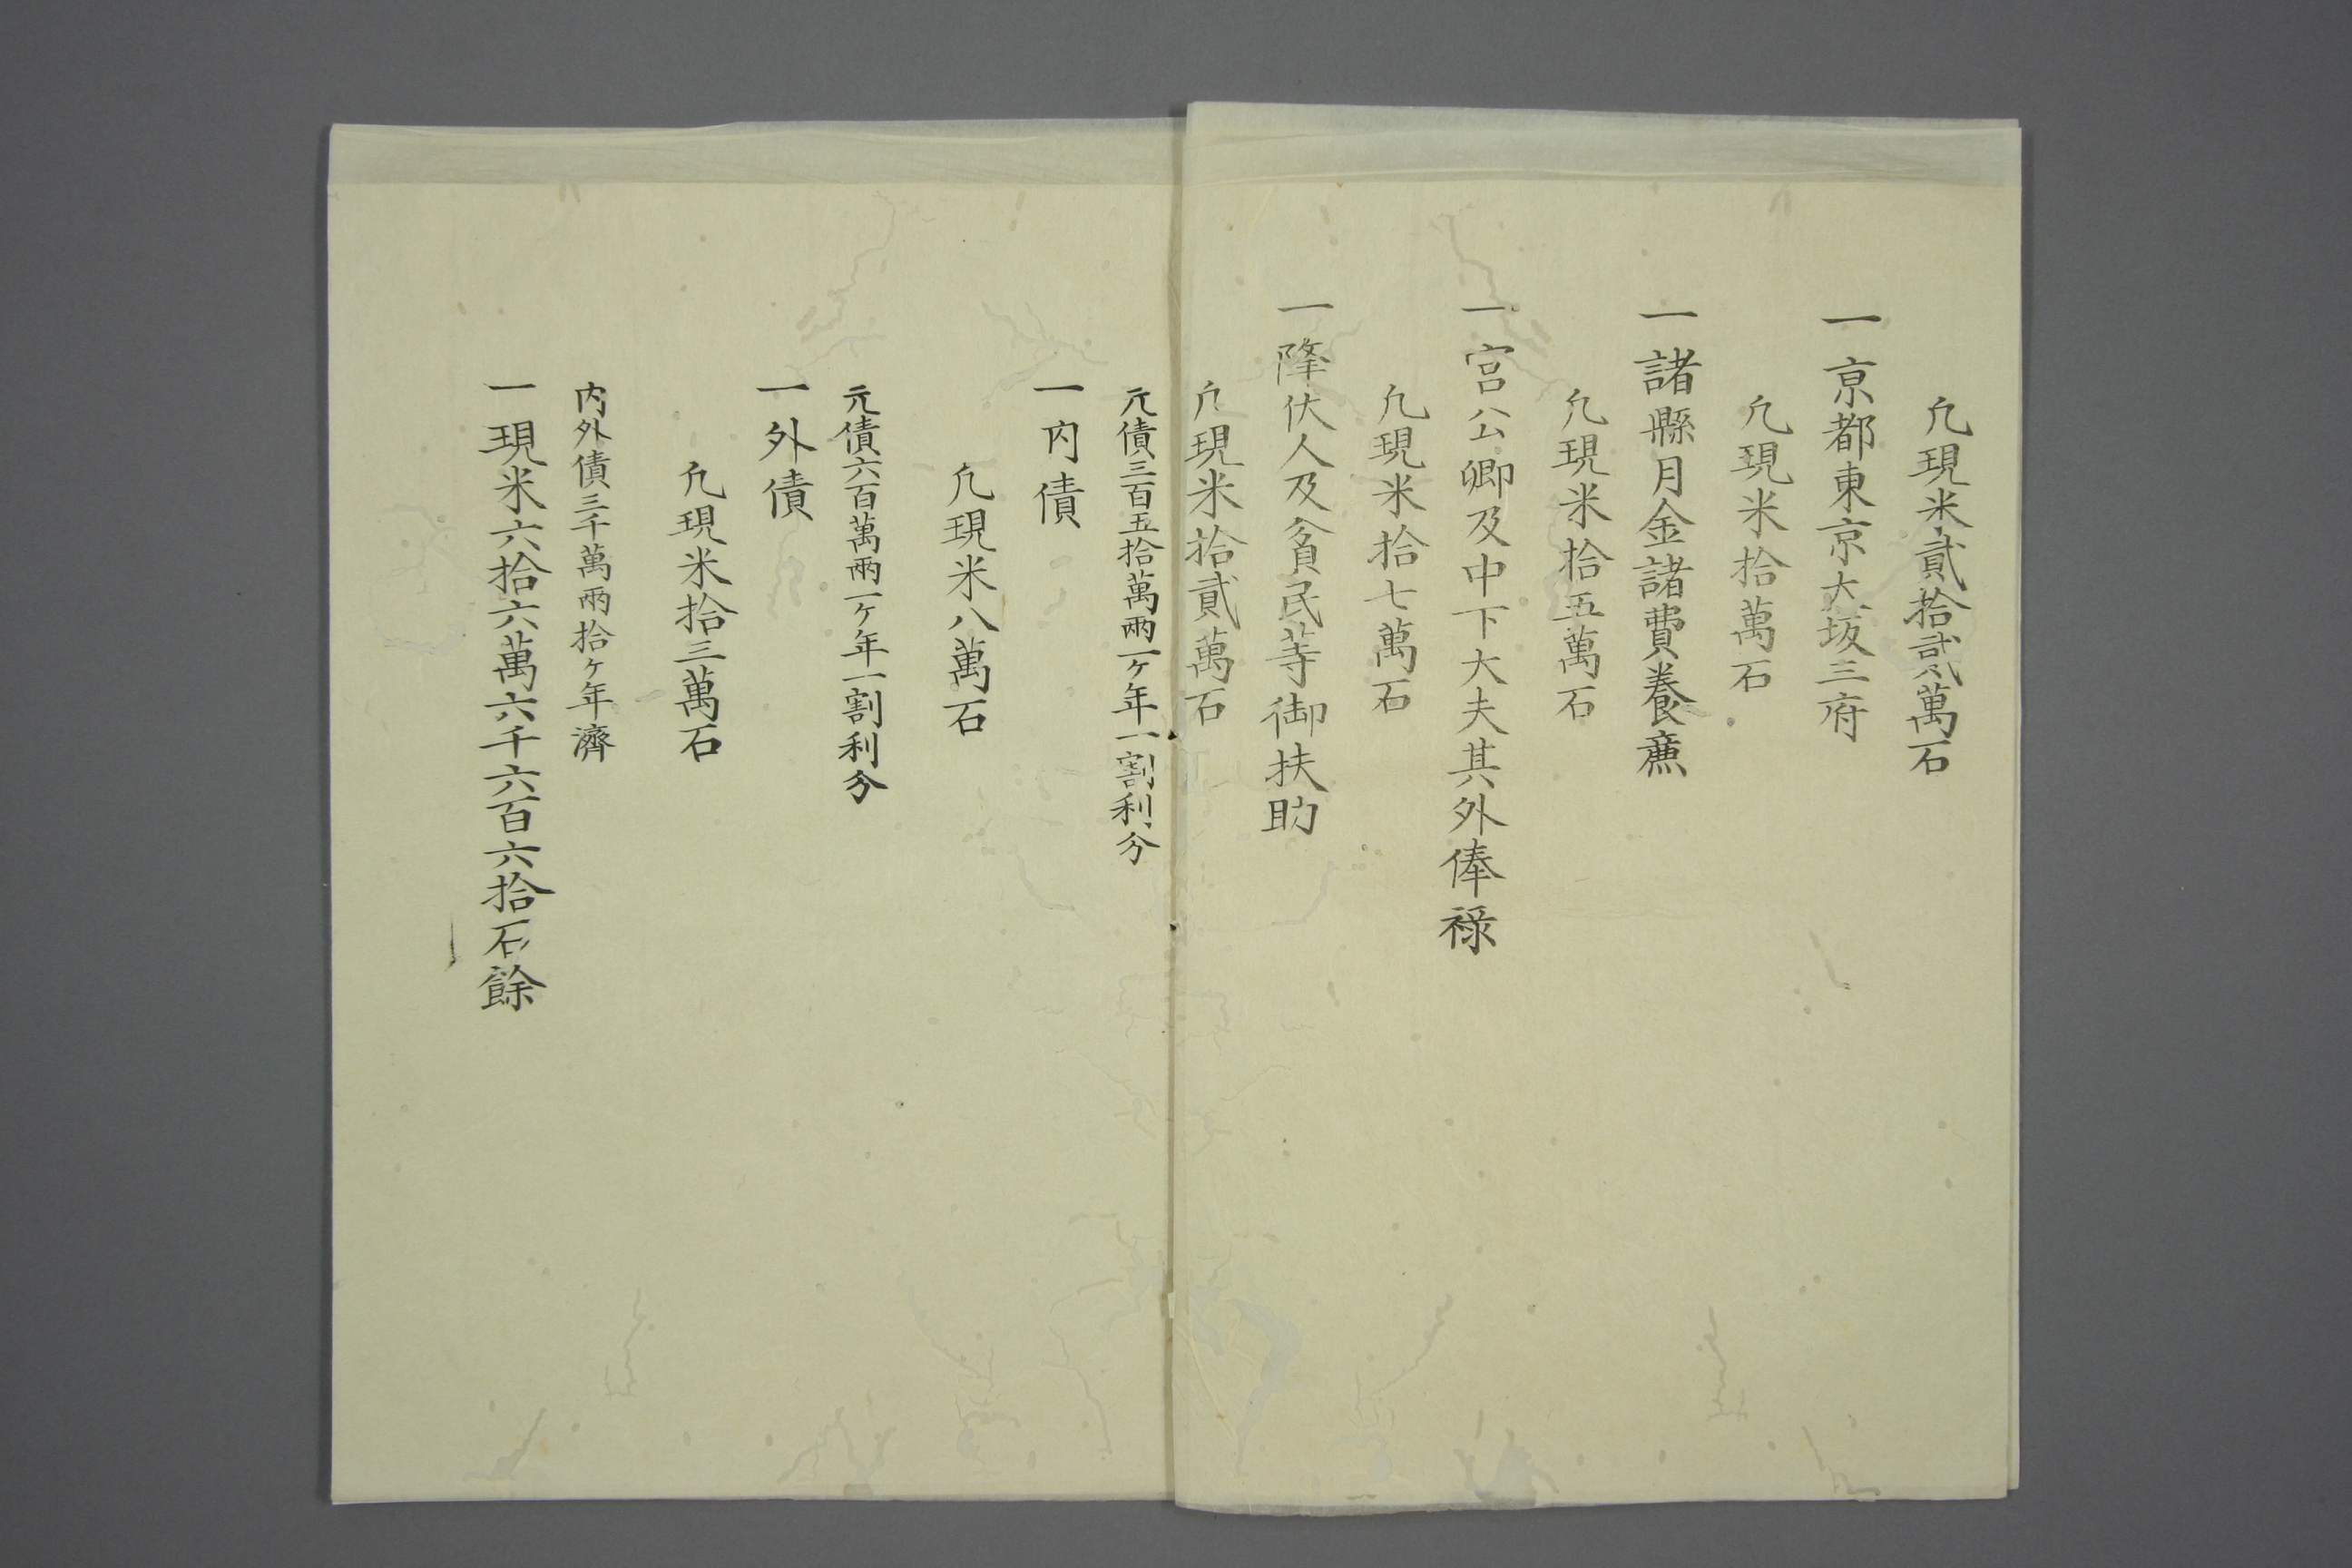 凢現米貳拾貳萬石
一京都東京大坂三府
凢現米拾萬石
一諸縣月金諸費養廉
凢現米拾五萬石
一宮公卿及中下大夫其外俸禄
凢現米拾七萬石
一降伏人及貧民等御扶助
凢現米拾貳萬石
元債三百五拾萬兩一ヶ年一割利分
一内債
凢現米八萬石
元債六百萬兩一ヶ年一割利分
一外債
凢現米拾三萬石
内外債三千萬兩拾ヶ年濟
一現米六拾六萬六千六百六拾石餘